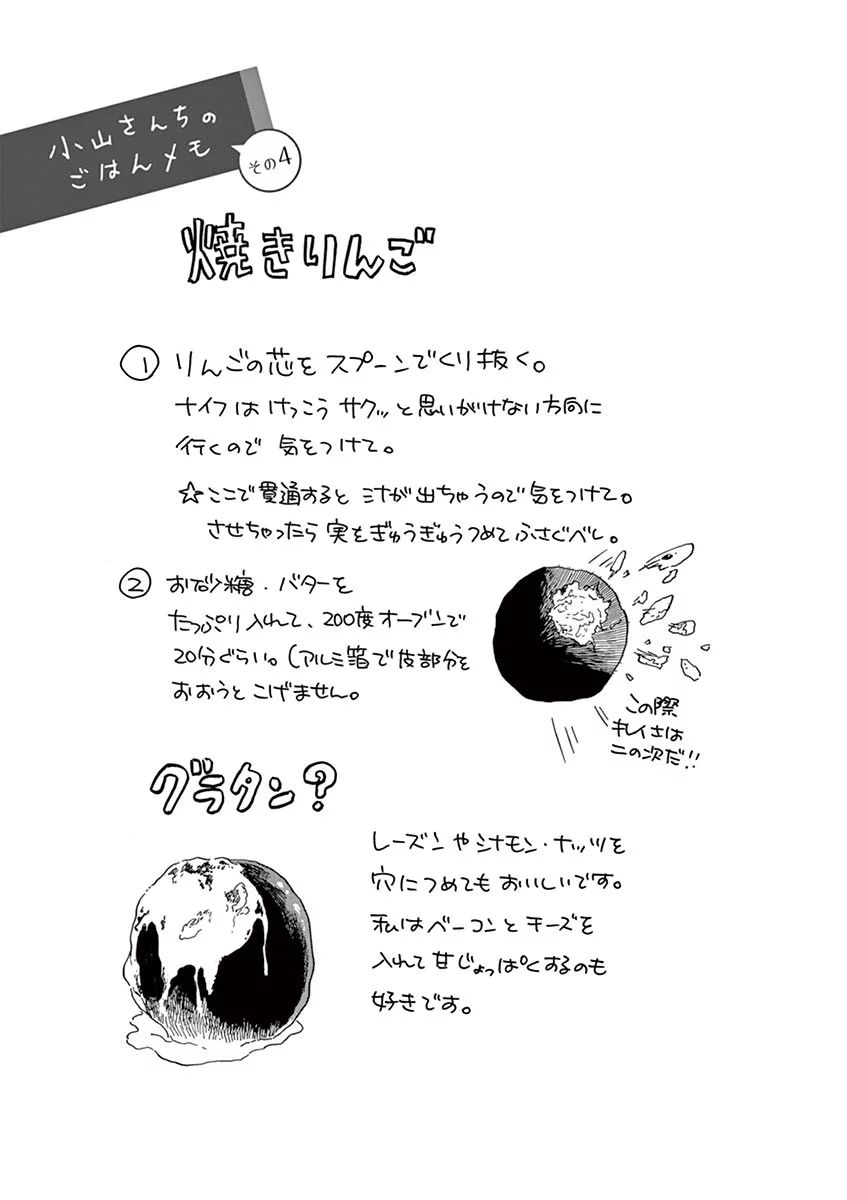 小山さんちの
ごはんメモ
その4
焼きりんご
① りんごの芯をスプーンでくり抜く。
ナイフはけっこうサクッと思いがけない方向に
行くので気をつけて。
☆ここで貫通すると汁が出ちゃうので気をつけて。
させちゃったら実をぎゅうぎゅうつめてふさぐべし。
② お砂糖・バターを
たっぷり入れて、200度オーブンで
20分ぐらい。(アルミ箔で皮部分を
おおうとこげません。
この際
キレイさは
二の次だ!!
グラタン?
レーズンやシナモン・ナッツを
穴につめてもおいしいです。
私はベーコンとチーズを
入れて甘じょっぱくするのも
好きです。